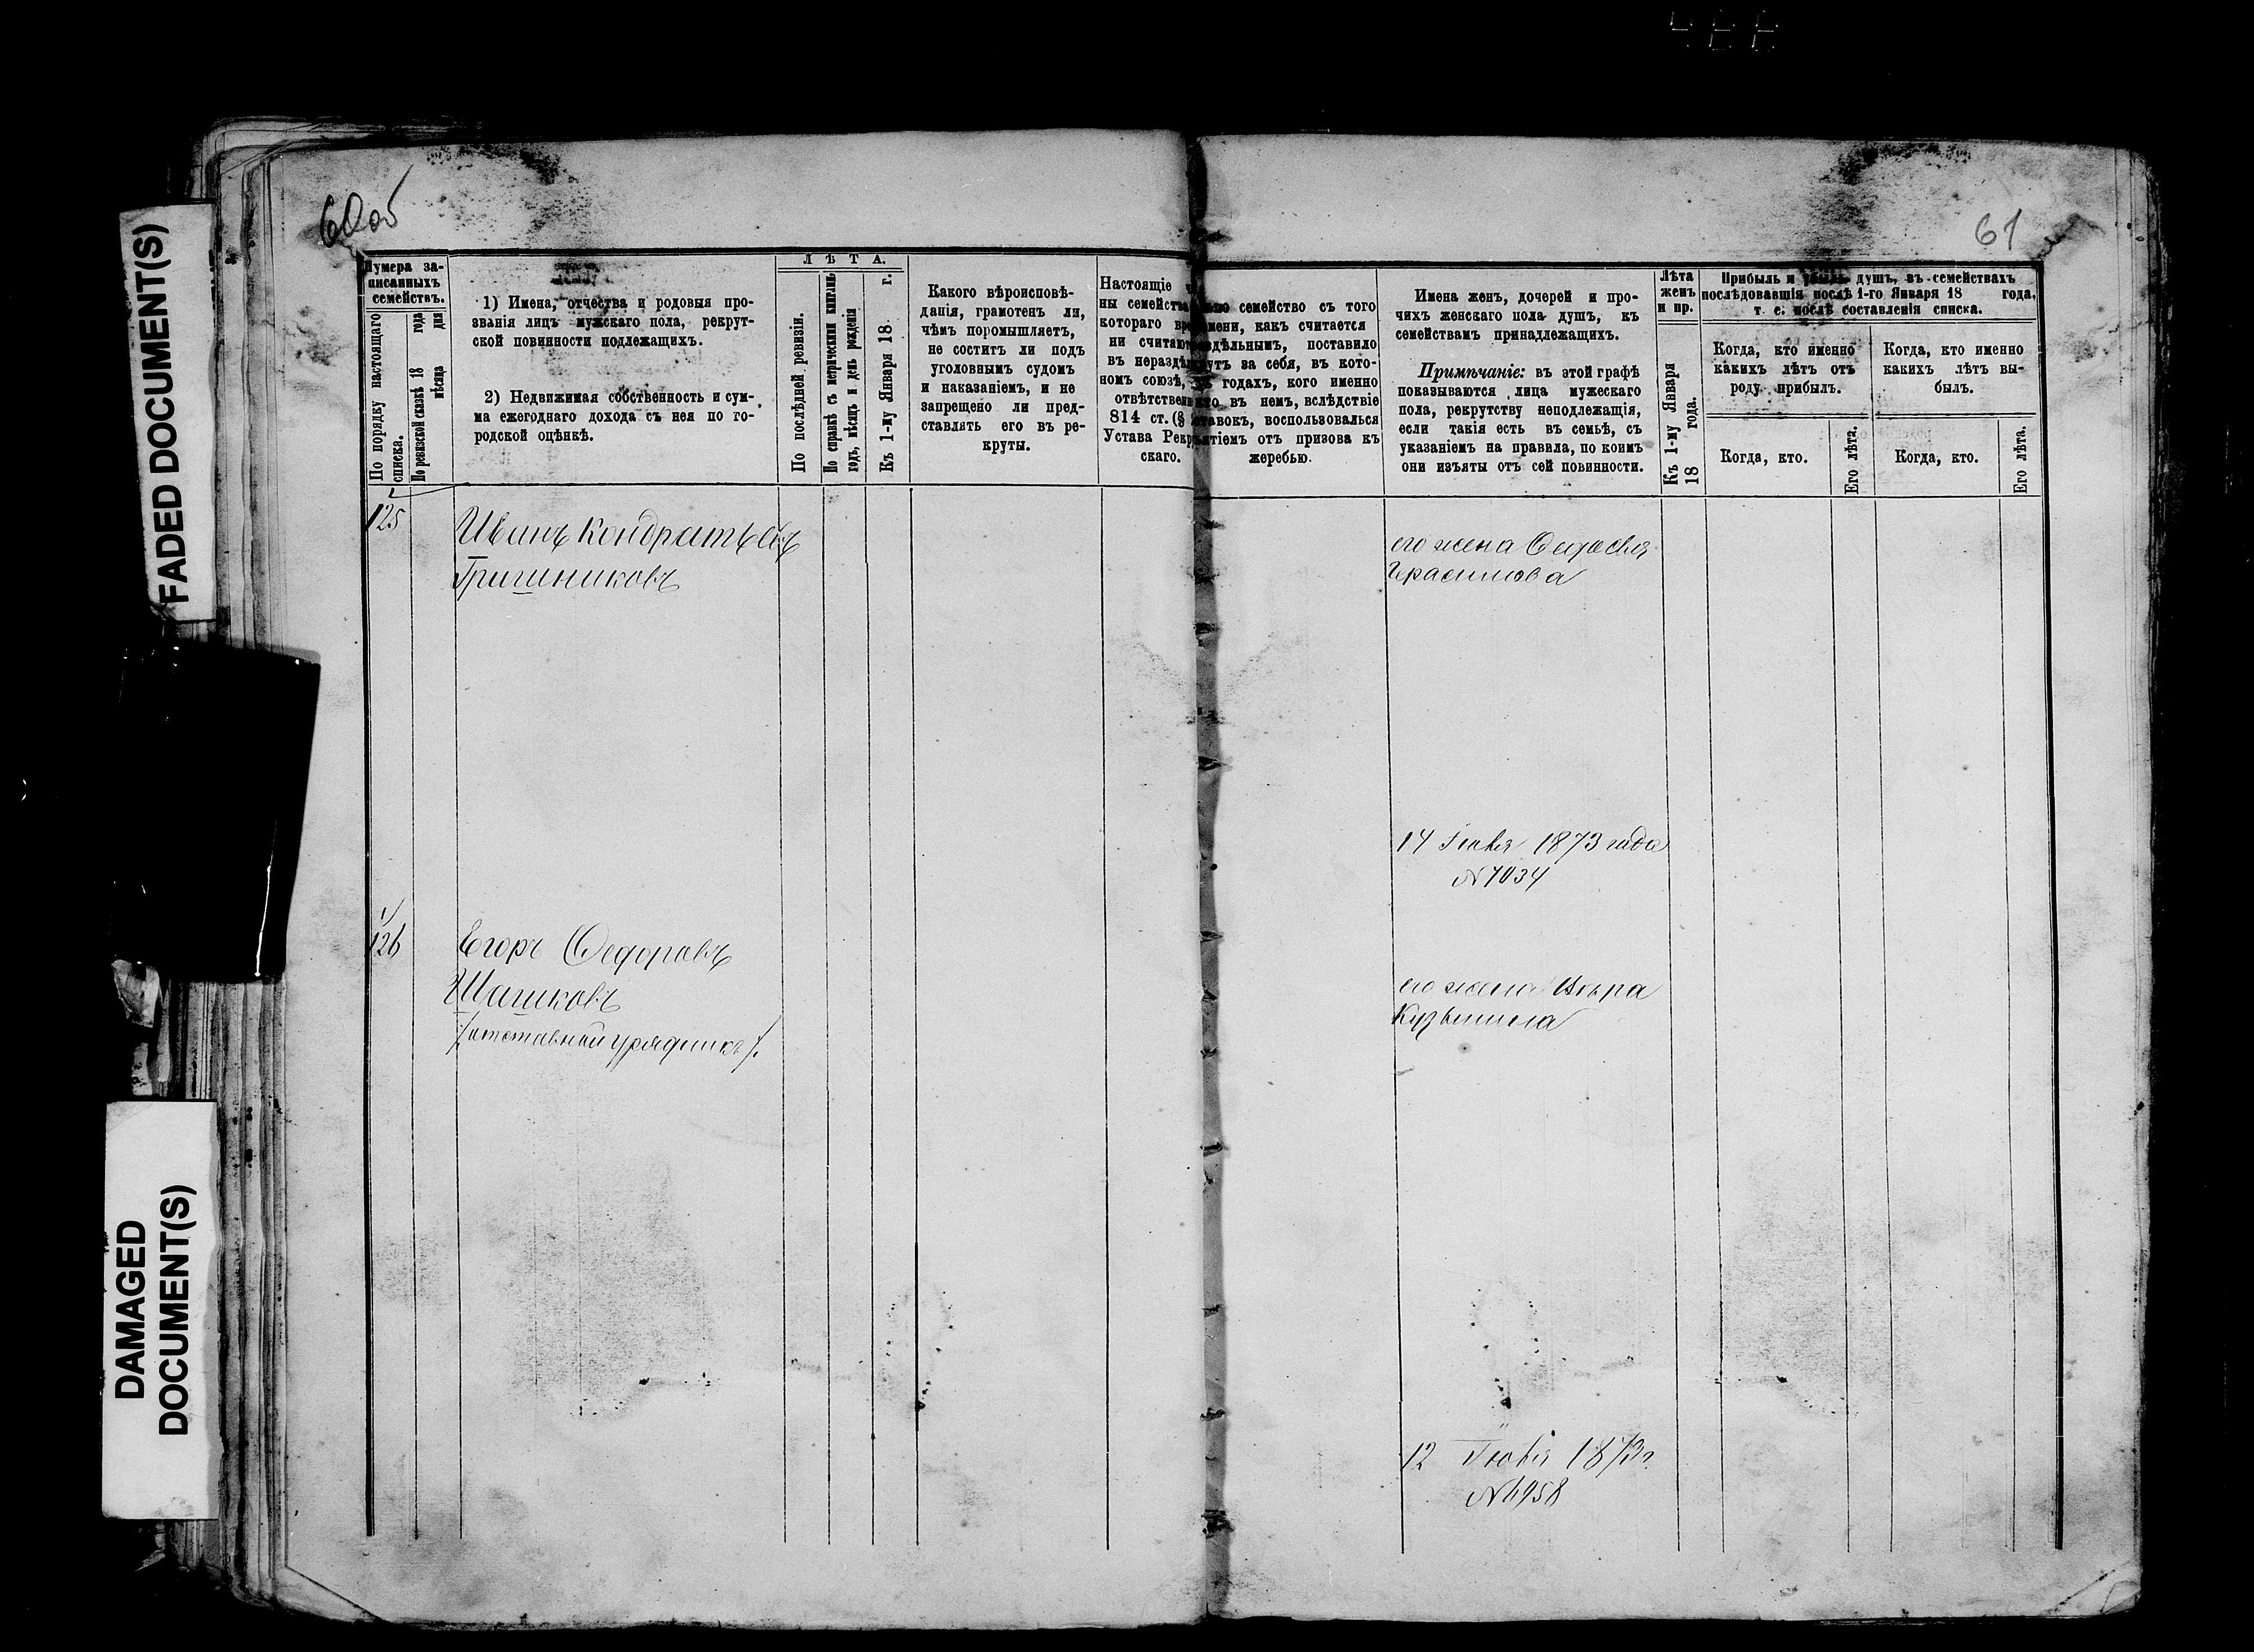 60об
61
FADED DOCUMENT(S)
DAMAGED
DOCUMENT(S)
Нумера за-
писанныхъ
семействъ.
По порядку настоящаго
списка.
По ревизской сказкѣ 18 года
мѣсяца дня
1) Имена, отчества и родовыя про-
званія лицъ мужскаго пола, рекрут-
ской повинности подлежащихъ.
2) Недвижимая собственность и сум-
ма ежегоднаго дохода съ нея по го-
родской оцѣнкѣ.
ЛѢТА.
По послѣдней ревизіи.
По справкѣ съ метрическими книгами
годъ, мѣсяцъ и день рожденія
Къ 1-му Января 18 г.
Какого вѣроисповѣ-
данія, грамотенъ ли,
чѣмъ поромышляетъ,
не соститъ ли подъ
уголовнымъ судомъ
и наказаніемъ, и не
запрещено ли пред-
ставлять его въ ре-
круты.
Настоящіе
ны семейства
котораго
ни считают
въ нераздѣ
номъ союзѣ,
отвѣтствен
814 ст. (§
Устава Рек
скаго.
семейство съ того
мени, какъ считается
здѣльнымъ, поставило
рутъ за себя, въ кото-
годахъ, кого именно
въ немъ, вслѣдствіе
ставокъ, воспользовалься
ятіемъ отъ призова къ
жеребью.
Имена женъ, дочерей и про-
чихъ женскаго пола душъ, къ
семействамъ принадлежащихъ.
Примѣчаніе: въ этой графѣ
показываются лица мужескаго
пола, рекрутству неподлежащія,
если такія есть въ семьѣ, съ
указаніемъ на правила, по коимъ
они изъяты отъ сей повинности.
Лѣта
женъ
и пр.
Къ 1-му Января
18 года.
Прибыль и убыль душъ, въ семействахъ
послѣдовавшія послѣ 1-го Января 18 года,
т. е. послѣ составленія списка.
Когда, кто именно
какихъ лѣтъ отъ
роду прибылъ.
Когда, кто именно
какихъ лѣтъ вы-
былъ.
Когда, кто.
Его лѣта.
Когда, кто.
Его лѣта.
125
Иванъ Кондратьевъ
Гришниковъ
его жена Федосья
Герасимова
14 Іюля 1873 года
№ 7034
126
Егоръ Федоровъ
Шашковъ
/отставной урядникъ/.
его жена Вѣра
Кузьмина
12 Іюля 1873 г.
№ 6958